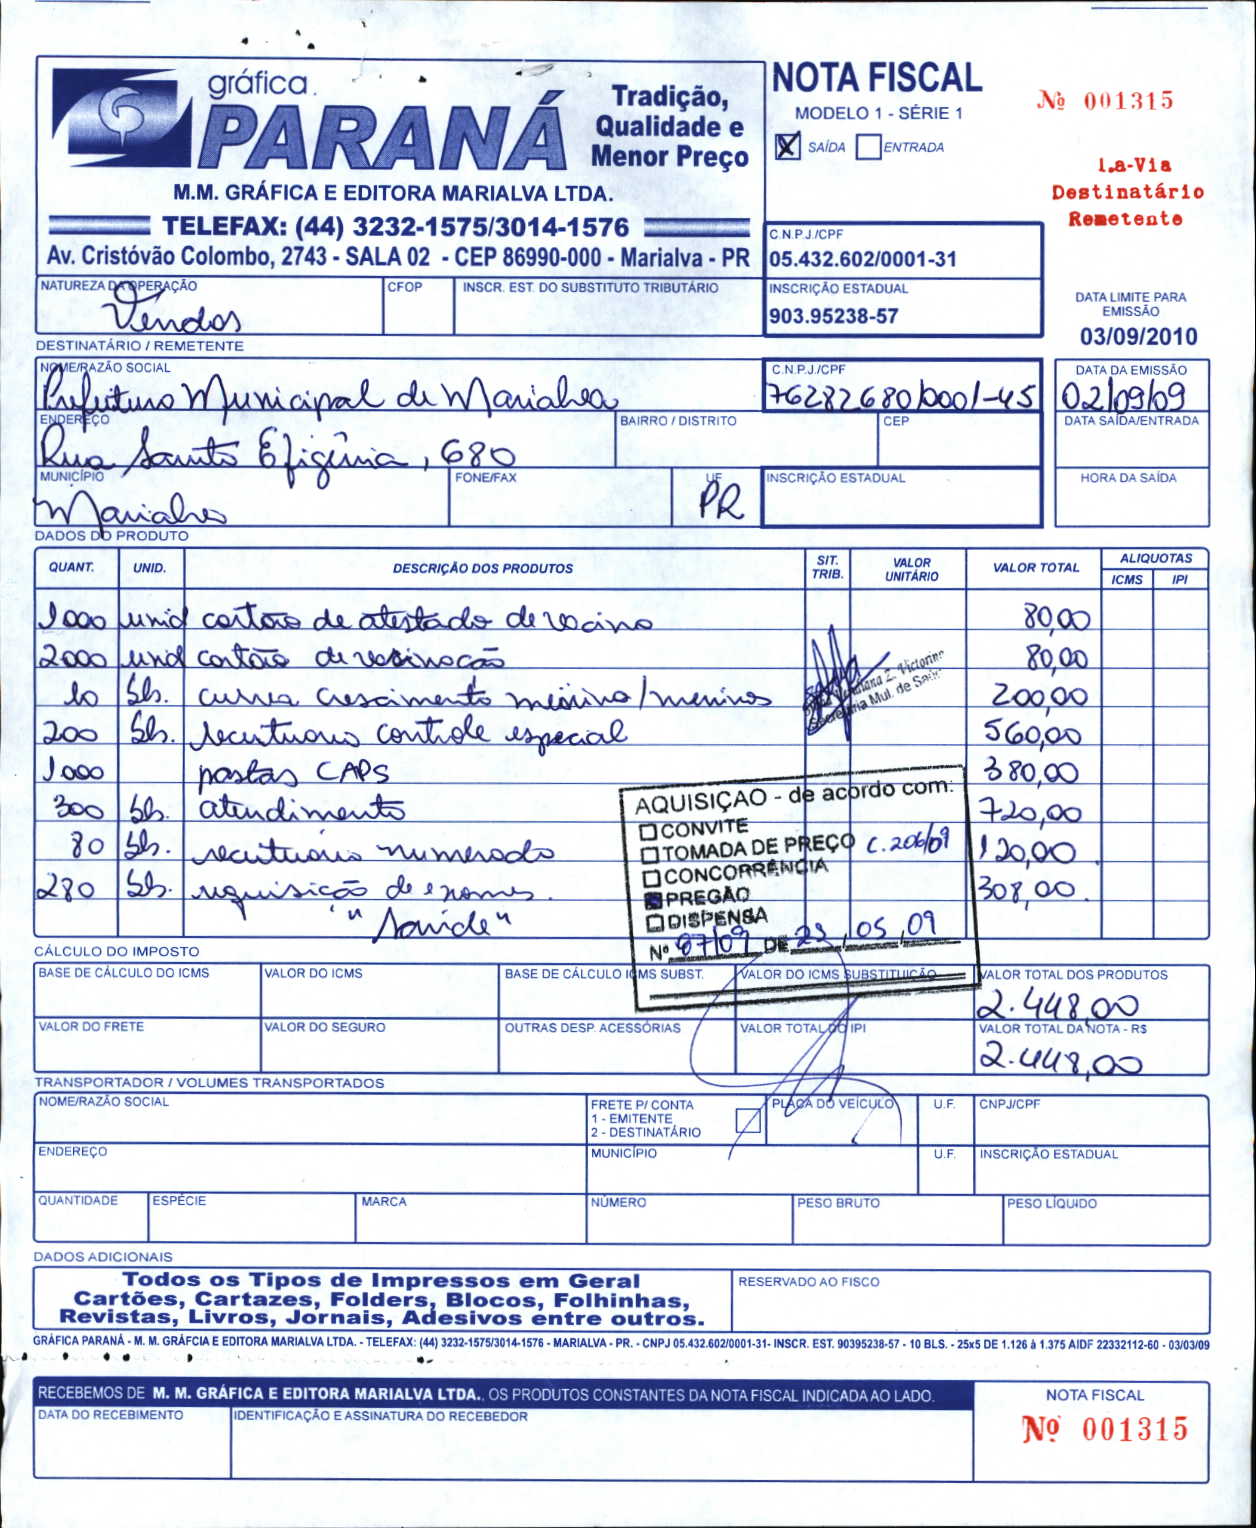 gráfica
PARANÁ
Tradição,
Qualidade e
Menor Preço
M.M. GRÁFICA E EDITORA MARIALVA LTDA.
TELEFAX: (44) 3232-1575/3014-1576
Av. Cristóvão Colombo, 2743 - SALA 02 - CEP 86990-000 - Marialva - PR
NOTA FISCAL
MODELO 1 - SÉRIE 1
X SAÍDA ENTRADA
Nº 001315
1.a-Via
Destinatário
Remetente
C.N.P.J./CPF
05.432.602/0001-31
NATUREZA DA OPERAÇÃO CFOP INSCR. EST. DO SUBSTITUTO TRIBUTÁRIO INSCRIÇÃO ESTADUAL
Vendas 903.95238-57
DATA LIMITE PARA
EMISSÃO
03/09/2010
DESTINATÁRIO / REMETENTE
NOME/RAZÃO SOCIAL C.N.P.J./CPF DATA DA EMISSÃO
Prefeitura Municipal de Marialva 76282680/0001-45 02/09/09
ENDEREÇO BAIRRO / DISTRITO CEP DATA SAÍDA/ENTRADA
Rua Santa Efigênia, 680
MUNICÍPIO FONE/FAX UF INSCRIÇÃO ESTADUAL HORA DA SAÍDA
Marialva PR
DADOS DO PRODUTO
QUANT. UNID. DESCRIÇÃO DOS PRODUTOS SIT. TRIB. VALOR UNITÁRIO VALOR TOTAL ALIQUOTAS
ICMS IPI
1000 unid cartão de atestado de vacina 80,00
2000 unid cartão de vacinação 80,00
10 bls. curva crescimento menino/menina 200,00
200 bls. receituario controle especial 560,00
1000 pastas CAPS 380,00
300 bls. atendimento 720,00
80 bls. receituario numerado 120,00
280 bls. requisição de exames. 308,00
"Saúde"
Z. Victorino
Secretária Mul. de Saúde
AQUISIÇÃO - de acordo com:
CONVITE
TOMADA DE PREÇO C. 206/09
CONCORRÊNCIA
PREGÃO
DISPENSA
Nº 87/09 DE 23, 05, 09
CÁLCULO DO IMPOSTO
BASE DE CÁLCULO DO ICMS VALOR DO ICMS BASE DE CÁLCULO ICMS SUBST. VALOR DO ICMS SUBSTITUIÇÃO VALOR TOTAL DOS PRODUTOS
2.448,00
VALOR DO FRETE VALOR DO SEGURO OUTRAS DESP. ACESSÓRIAS VALOR TOTAL DO IPI VALOR TOTAL DA NOTA - R$
2.448,00
TRANSPORTADOR / VOLUMES TRANSPORTADOS
NOME/RAZÃO SOCIAL FRETE P/ CONTA PLACA DO VEÍCULO U.F. CNPJ/CPF
1 - EMITENTE
2 - DESTINATÁRIO
ENDEREÇO MUNICÍPIO U.F. INSCRIÇÃO ESTADUAL
QUANTIDADE ESPÉCIE MARCA NÚMERO PESO BRUTO PESO LÍQUIDO
DADOS ADICIONAIS
Todos os Tipos de Impressos em Geral
Cartões, Cartazes, Folders, Blocos, Folhinhas,
Revistas, Livros, Jornais, Adesivos entre outros.
RESERVADO AO FISCO
GRÁFICA PARANÁ - M. M. GRÁFCIA E EDITORA MARIALVA LTDA. - TELEFAX: (44) 3232-1575/3014-1576 - MARIALVA - PR. - CNPJ 05.432.602/0001-31- INSCR. EST. 90395238-57 - 10 BLS. - 25x5 DE 1.126 à 1.375 AIDF 22332112-60 - 03/03/09
RECEBEMOS DE M. M. GRÁFICA E EDITORA MARIALVA LTDA., OS PRODUTOS CONSTANTES DA NOTA FISCAL INDICADA AO LADO.
DATA DO RECEBIMENTO IDENTIFICAÇÃO E ASSINATURA DO RECEBEDOR
NOTA FISCAL
Nº 001315